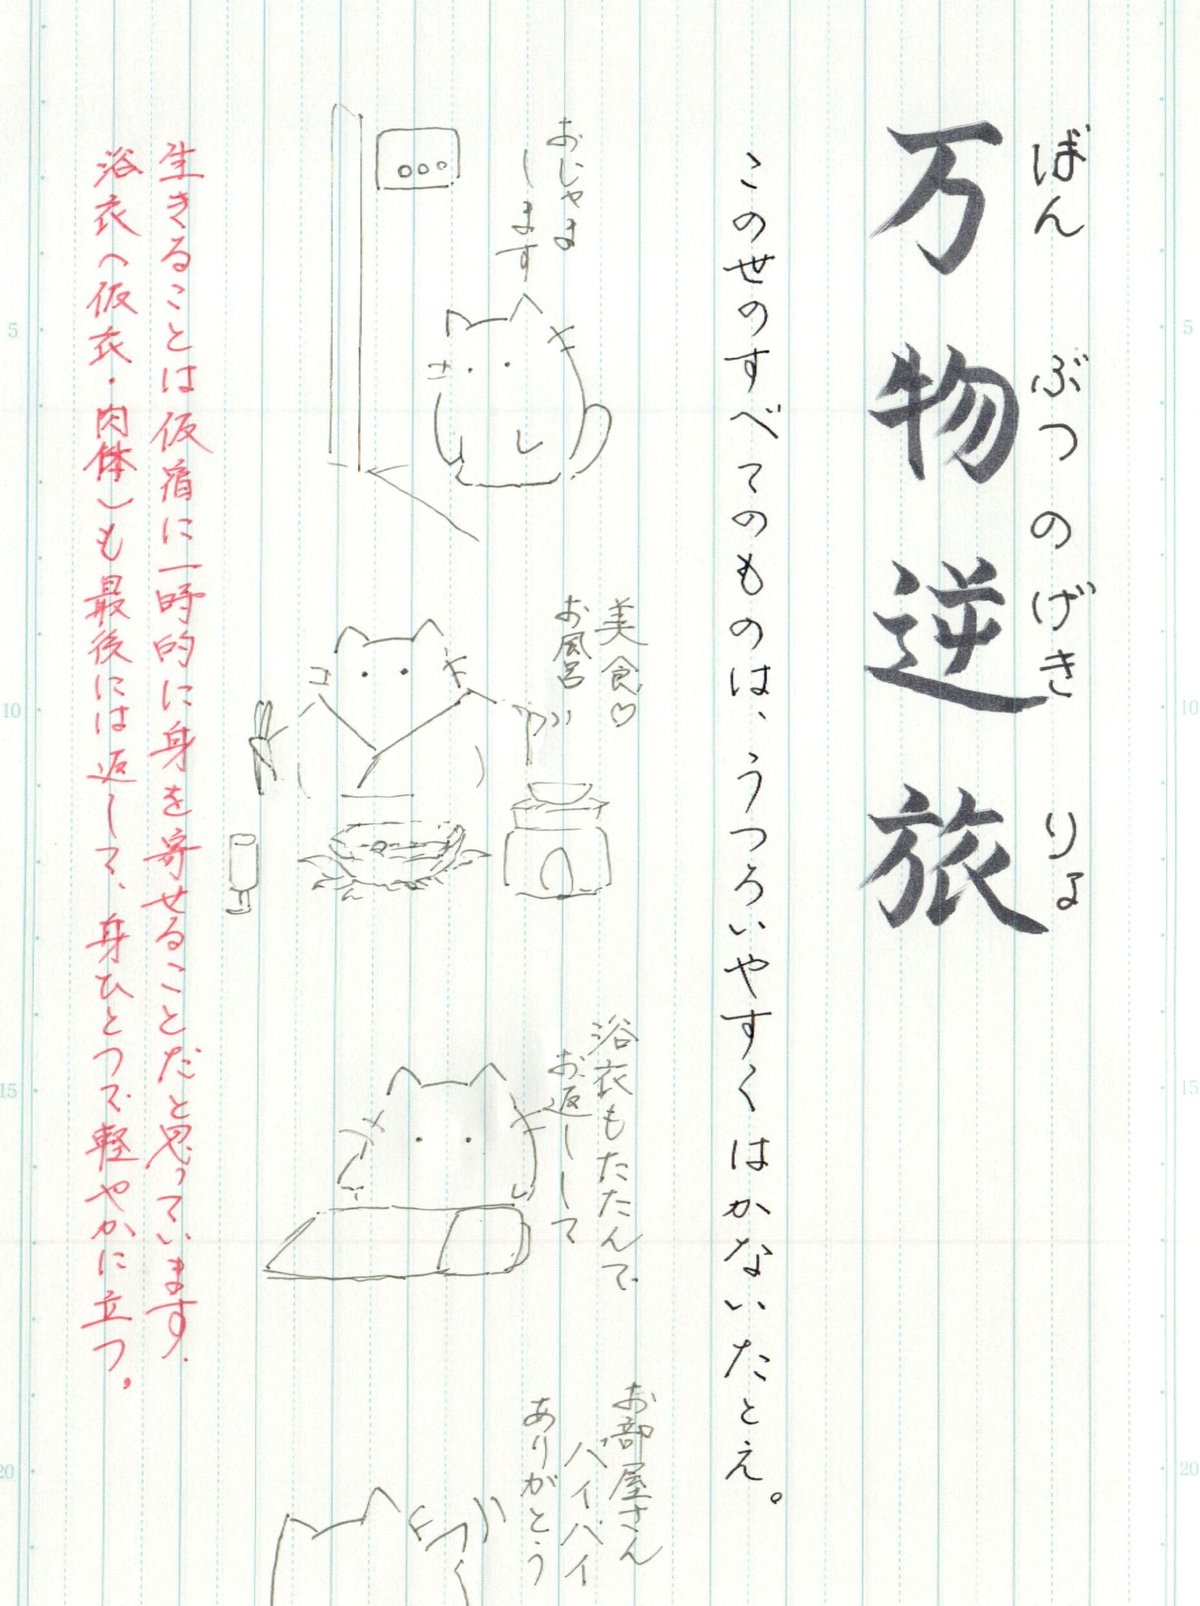 ばんぶつのげきりょ
万物逆旅
このせのすべてのものは、うつろいやすくはかないたとえ。
おじゃま
します
美食♡
お風呂
浴衣もたたんで
お返しして
お部屋さん
バイバイ
ありがとう
生きることは仮宿に一時的に身を寄せることだと思っています.
浴衣(仮衣・肉体)も最後には返して、身ひとつで軽やかに立つ。
5
10
15
20
5
10
15
20